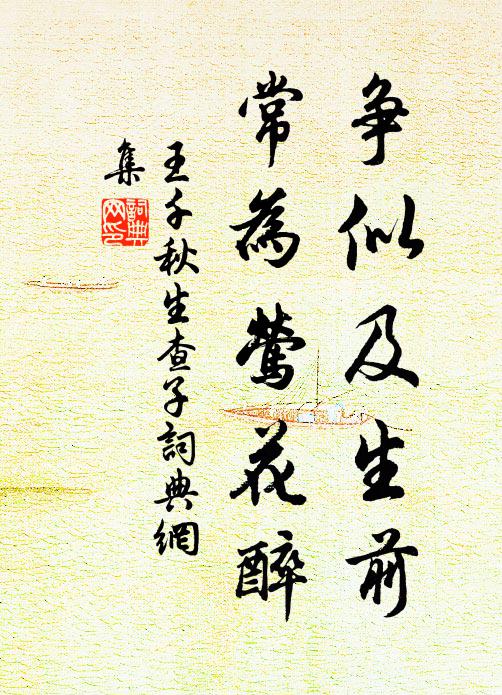 争似及生前
常為鶯花醉
王千秋生查子詞典網
集
詞典
网印